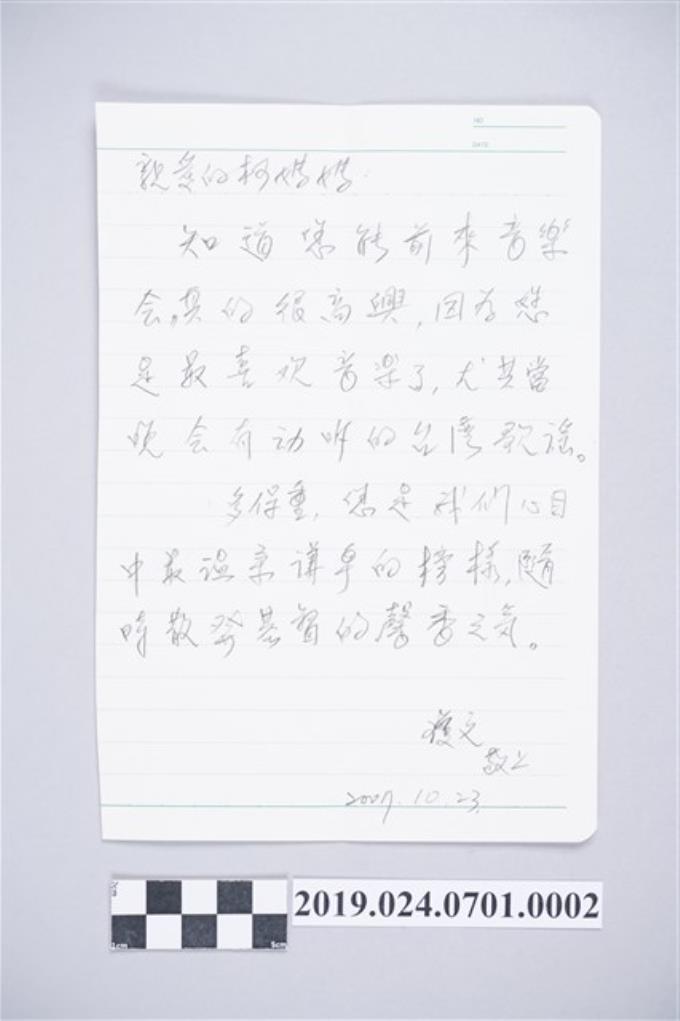 NO
DATE
親爱的柯媽媽：
知道您能前來音樂
会,真的很高興,因为您
是最喜欢音楽了,尤其當
晚会有动听的台湾歌謡。
多保重,您是我们心目
中最温柔謙卑的榜様,随
時散発基督的馨香之氣。
文
敬上
2007.10.23.
1cm
5cm
2019.024.0701.0002